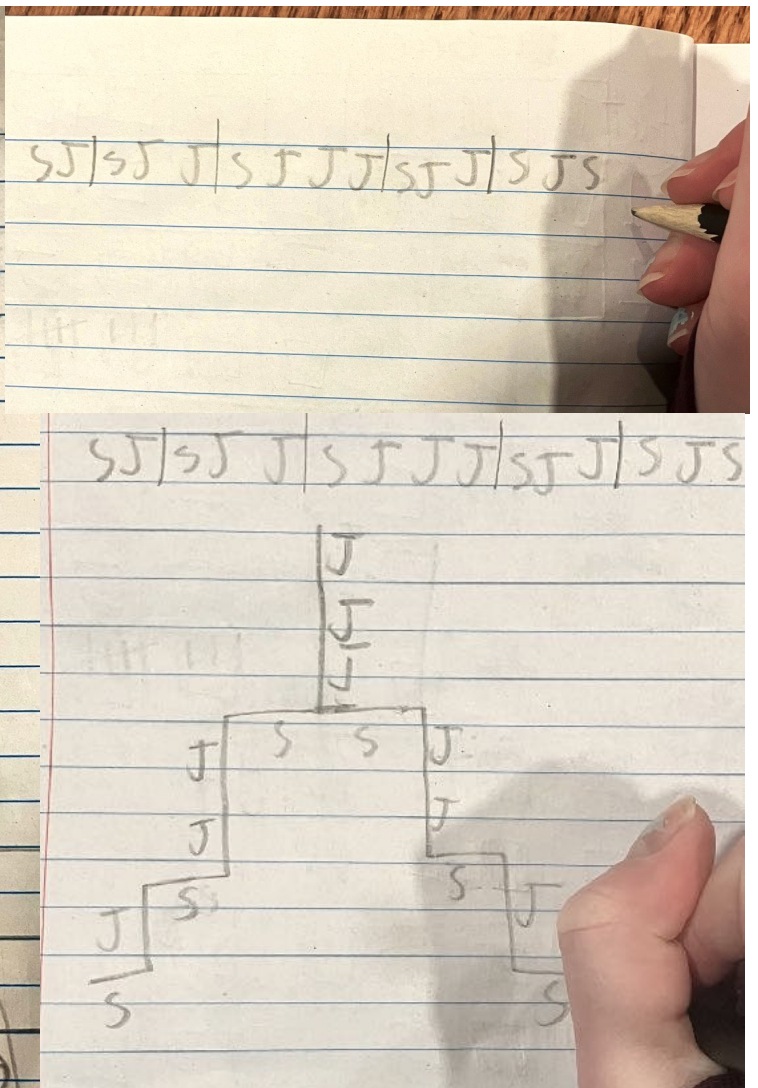 SJ|SJ J|S J J J|SJ J|S JS
SJ|SJ J|S J J J|SJ J|S JS
J
J
J
S S
J J
J J
S S
J J
S S